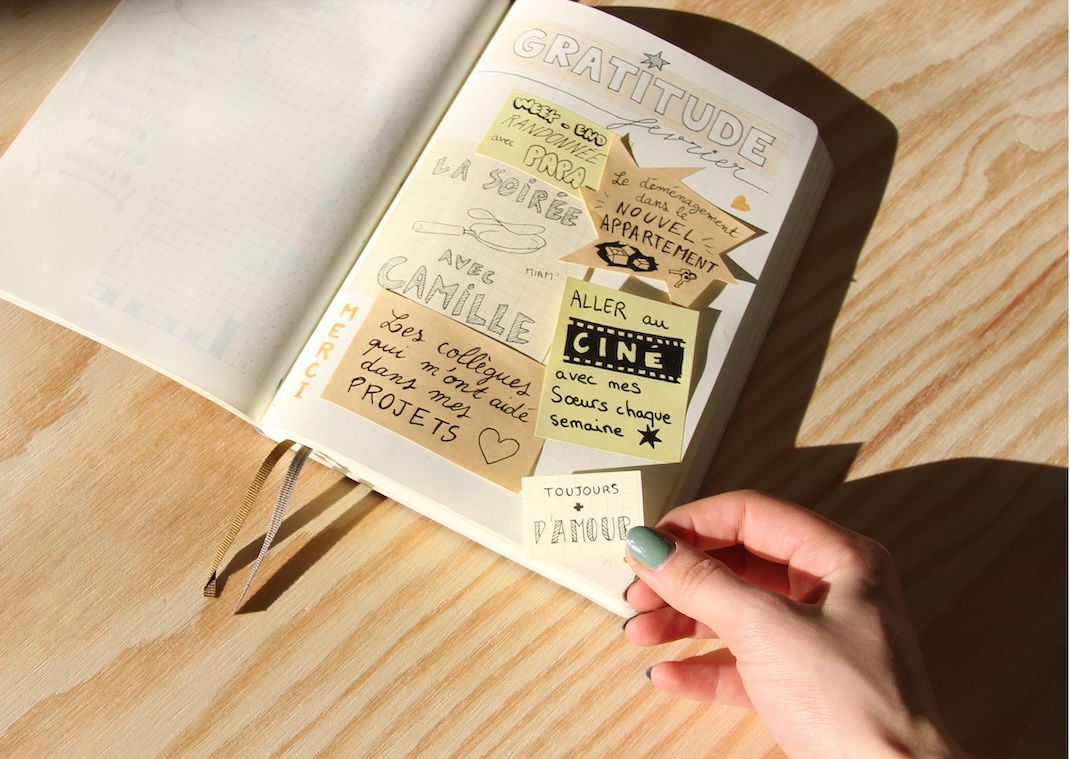 GRATITUDE
fevrier
WEEK-END
RANDONNÉE
avec PAPA
Le déménagement
dans le
NOUVEL
APPARTEMENT
LA SOIRÉE
AVEC
MIAM!
CAMILLE
ALLER au
CINÉ
avec mes
Sœurs chaque
semaine
MERCI
Les collègues
qui m'ont aidé
dans mes
PROJETS
TOUJOURS
+
D'AMOUR